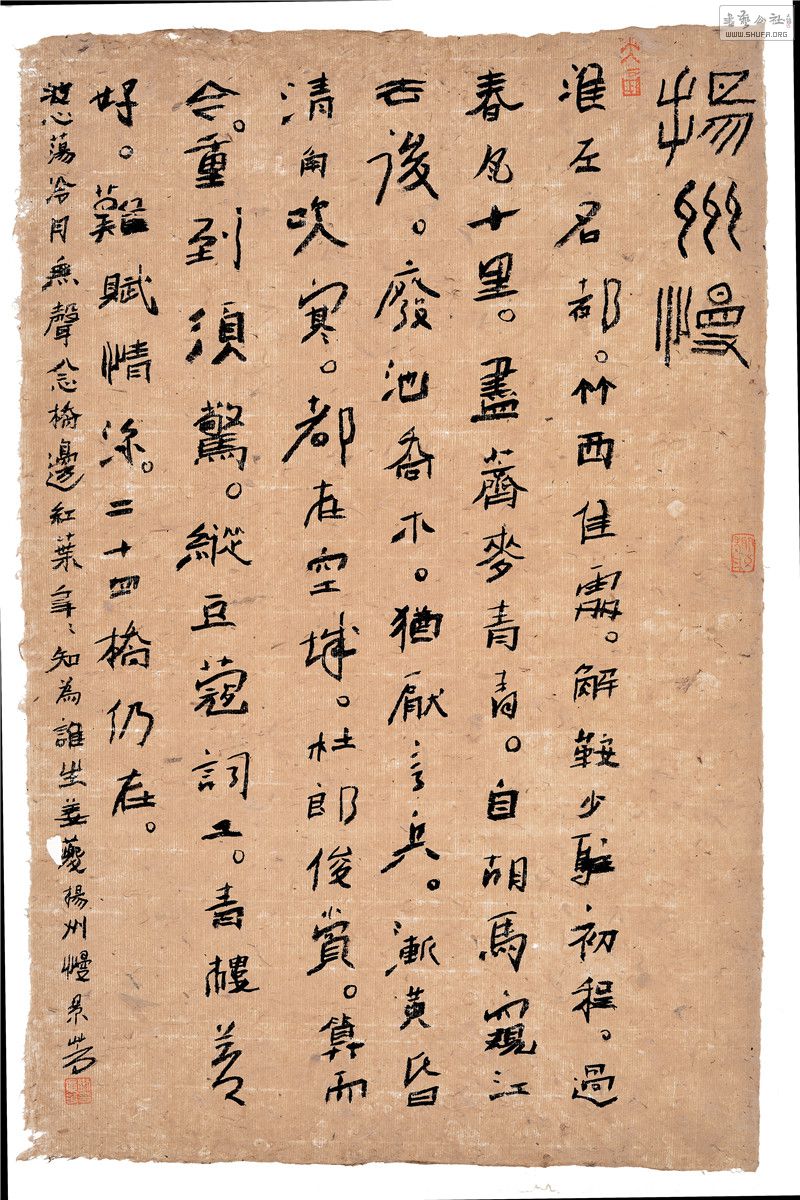 書藝公社
WWW.SHUFA.ORG
揚州慢
淮左名都。竹西佳處。解鞍少駐初程。過
春風十里。盡薺麥青青。自胡馬窺江
去後。廢池喬木。猶厭言兵。漸黃昏
清角吹寒。都在空城。杜郎俊賞。算而
今。重到須驚。縱豆蔻詞工。青樓夢
好。難賦情深。二十四橋仍在。
波心蕩冷月無聲念橋邊紅葉年〻知為誰生姜夔揚州慢景